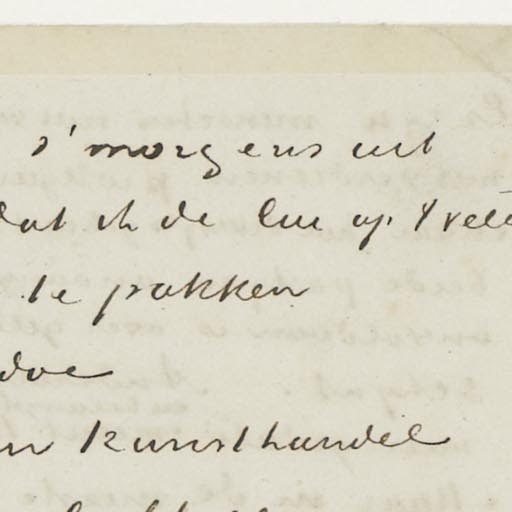 s'morgens uit
dat ik de lui op 't veld
te pakken
doe
n kunsthandel